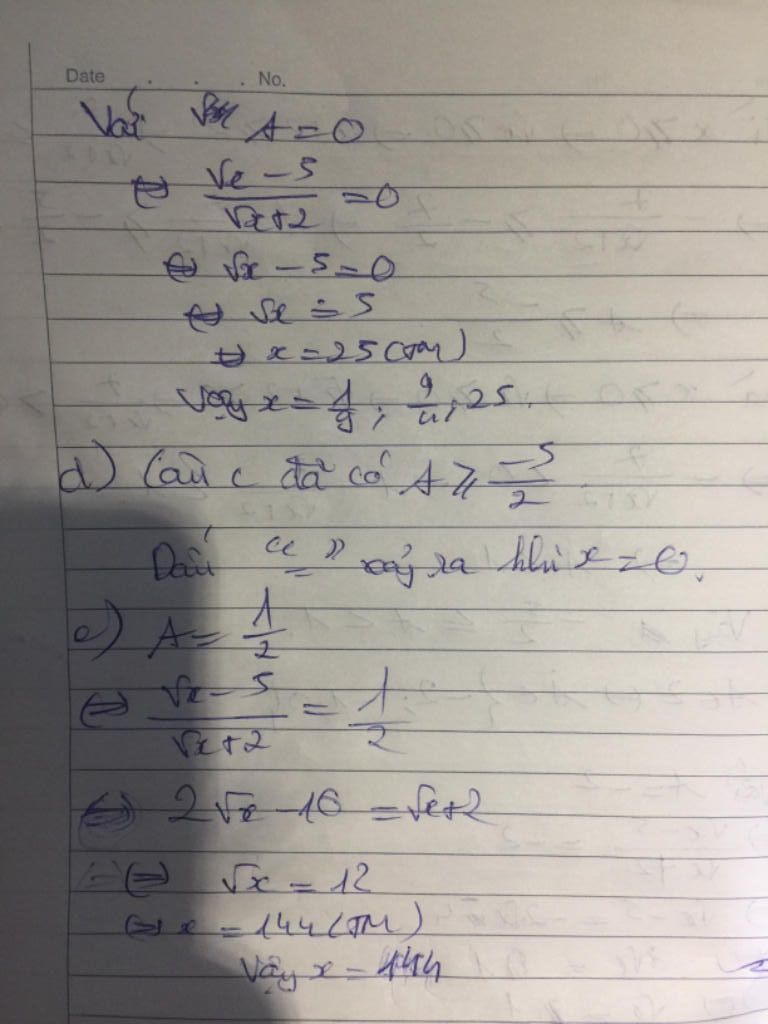 Date . . . No.
Với A = 0
⇔ √x - 5 / √x + 2 = 0
⇔ √x - 5 = 0
⇔ √x = 5
⇔ x = 25 (TM)
Vậy x = 1/9 ; 9/4 ; 25.
d) Câu c đã có A ⩾ -5/2
Dấu "=" xảy ra khi x = 0.
e) A = 1/2
⇔ √x - 5 / √x + 2 = 1/2
⇔ 2√x - 10 = √x + 2
⇔ √x = 12
⇔ x = 144 (TM)
Vậy x = 144